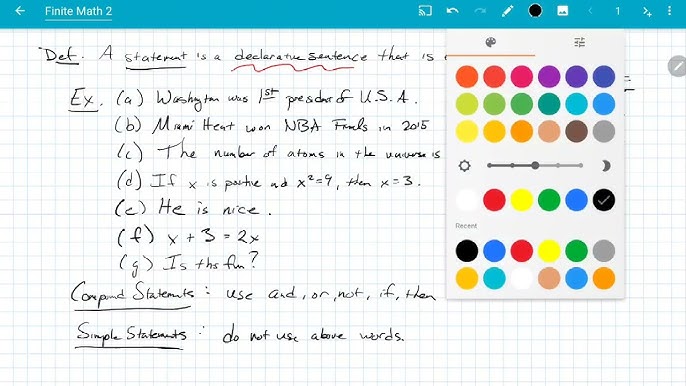 Finite Math 2
1
Def. A statement is a declarative sentence that is
Ex. (a) Washington was 1st president of U.S.A.
(b) Miami Heat won NBA Finals in 2015
(c) The number of atoms in the universe is
(d) If x is positive and x²=9, then x=3.
(e) He is nice.
(f) x + 3 = 2x
(g) Is this fun?
Compound Statements: use and, or, not, if, then
Simple Statements: do not use above words.
Recent